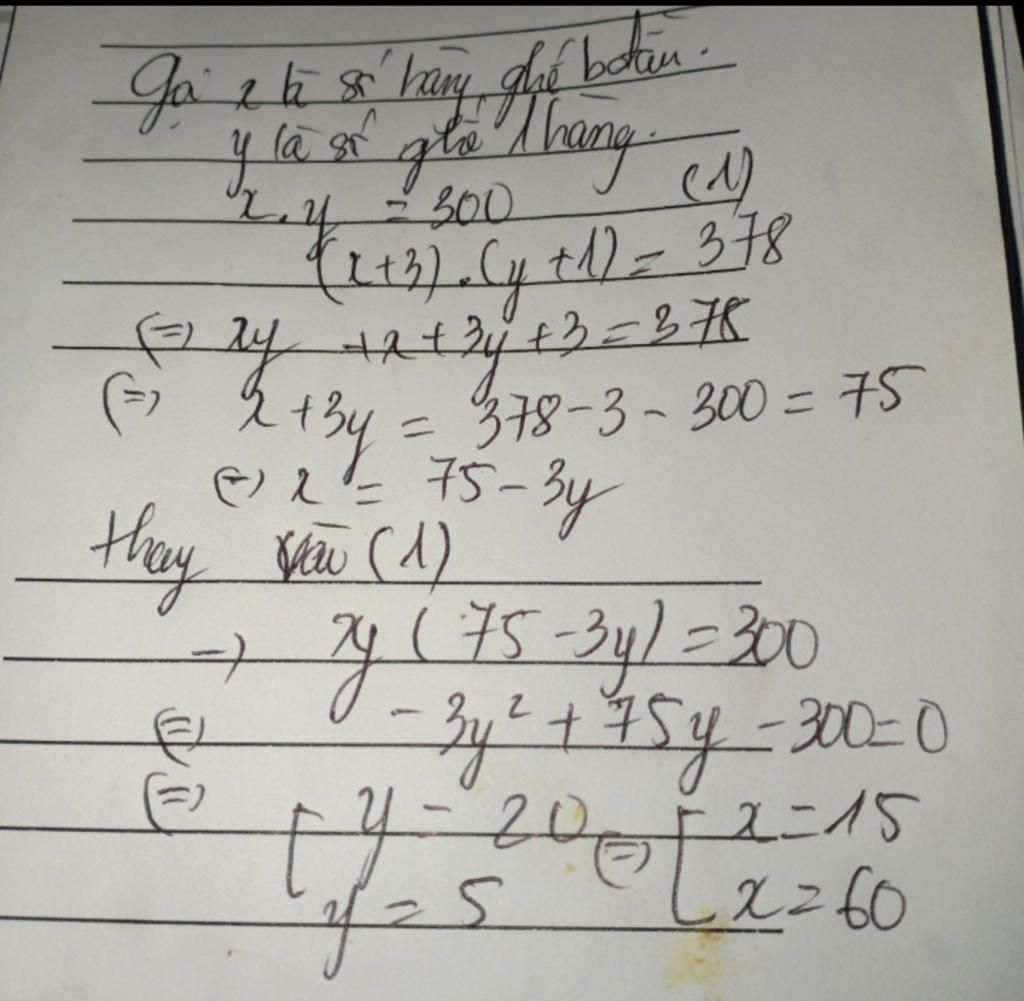 Gọi x là số hàng ghế bđầu.
y là số ghế 1 hàng.
x.y = 300 (1)
(x+3).(y+1) = 378
(=) xy + x + 3y + 3 = 378
(=) x + 3y = 378 - 3 - 300 = 75
(=) x = 75 - 3y
thay vào (1)
→ xy (75 - 3y) = 300
(=) - 3y² + 75y - 300 = 0
(=) [ y = 20 (=) [ x = 15
y = 5 x = 60